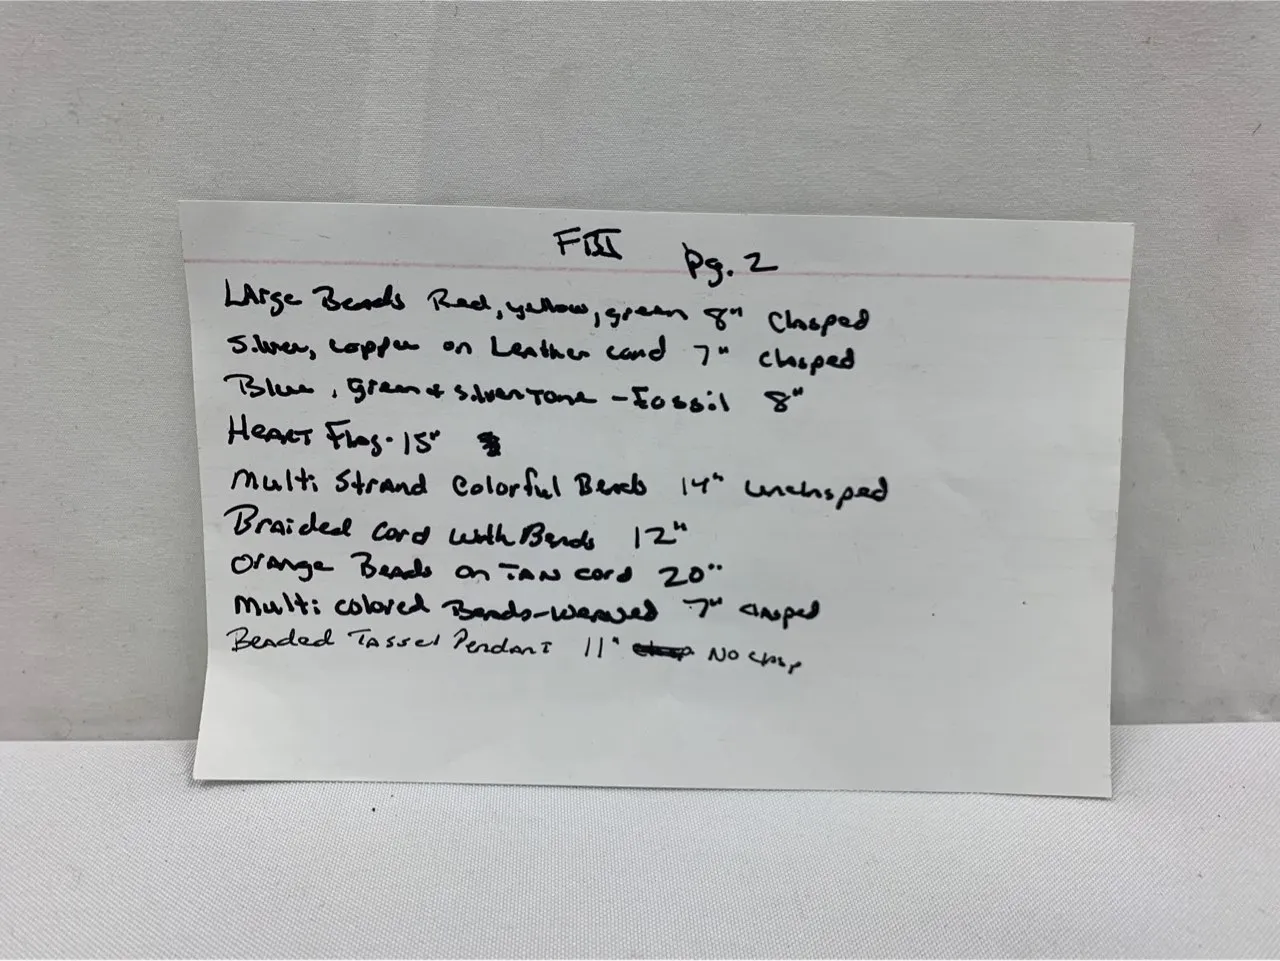 FIII Pg. 2
Large Beads Red, yellow, green 8" Clasped
Silver, copper on Leather cord 7" clasped
Blue, green + silver Tone - Fossil 8"
HEART Flag - 15"
Multi Strand Colorful Beads 14" unclasped
Braided Cord with Beads 12"
Orange Beads on TAN cord 20"
Multi colored Beads - Weaved 7" clasped
Beaded Tassel Pendant 11" No clasp